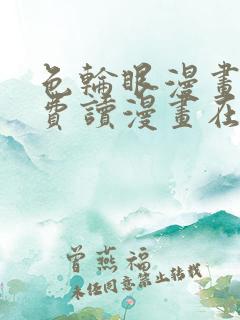 色輪眼漫畫
費讀漫畫在
曾燕福
未经同意禁止转载